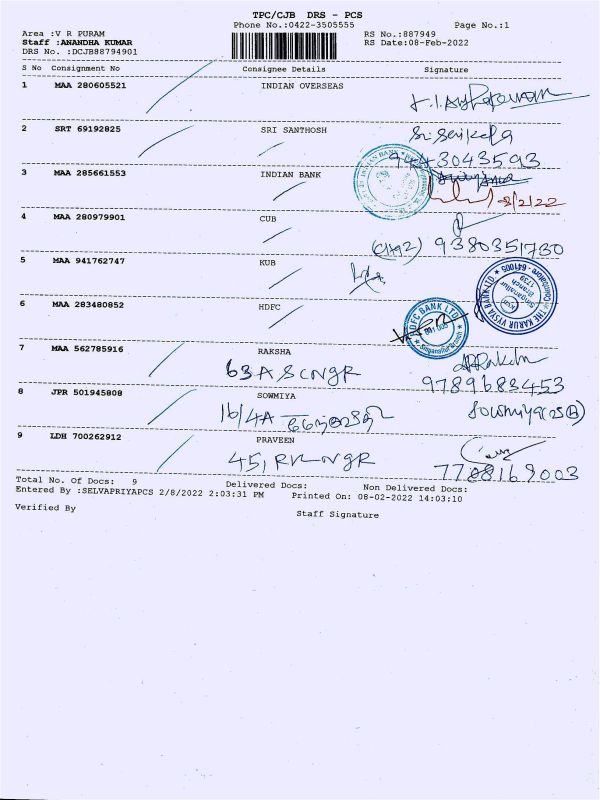 TPC/CJB DRS - PCS
Phone No.:0422-3505555 Page No.:1
Area :V R PURAM RS No.:887949
Staff :ANANDHA KUMAR RS Date:08-Feb-2022
DRS No. :DCJB88794901
S No Consignment No Consignee Details Signature
1 MAA 280605521 INDIAN OVERSEAS
2 SRT 69192825 SRI SANTHOSH
9443043593
3 MAA 285661553 INDIAN BANK
8/2/22
4 MAA 280979901 CUB
9380351730
5 MAA 941762747 KUB
THE KARUR VYSYA BANK LTD
Singanallur
Branch
1739
Coimbatore - 641005
6 MAA 283480852 HDFC
HDFC BANK LTD
641 005
Singanallur Branch
7 MAA 562785916 RAKSHA
63 A S C NGR 9789683453
8 JPR 501945808 SOWMIYA
16/4A Sowmiya
9 LDH 700262912 PRAVEEN
45, RK NGR 7708169003
Total No. Of Docs: 9 Delivered Docs: Non Delivered Docs:
Entered By :SELVAPRIYAPCS 2/8/2022 2:03:31 PM Printed On: 08-02-2022 14:03:10
Verified By Staff Signature